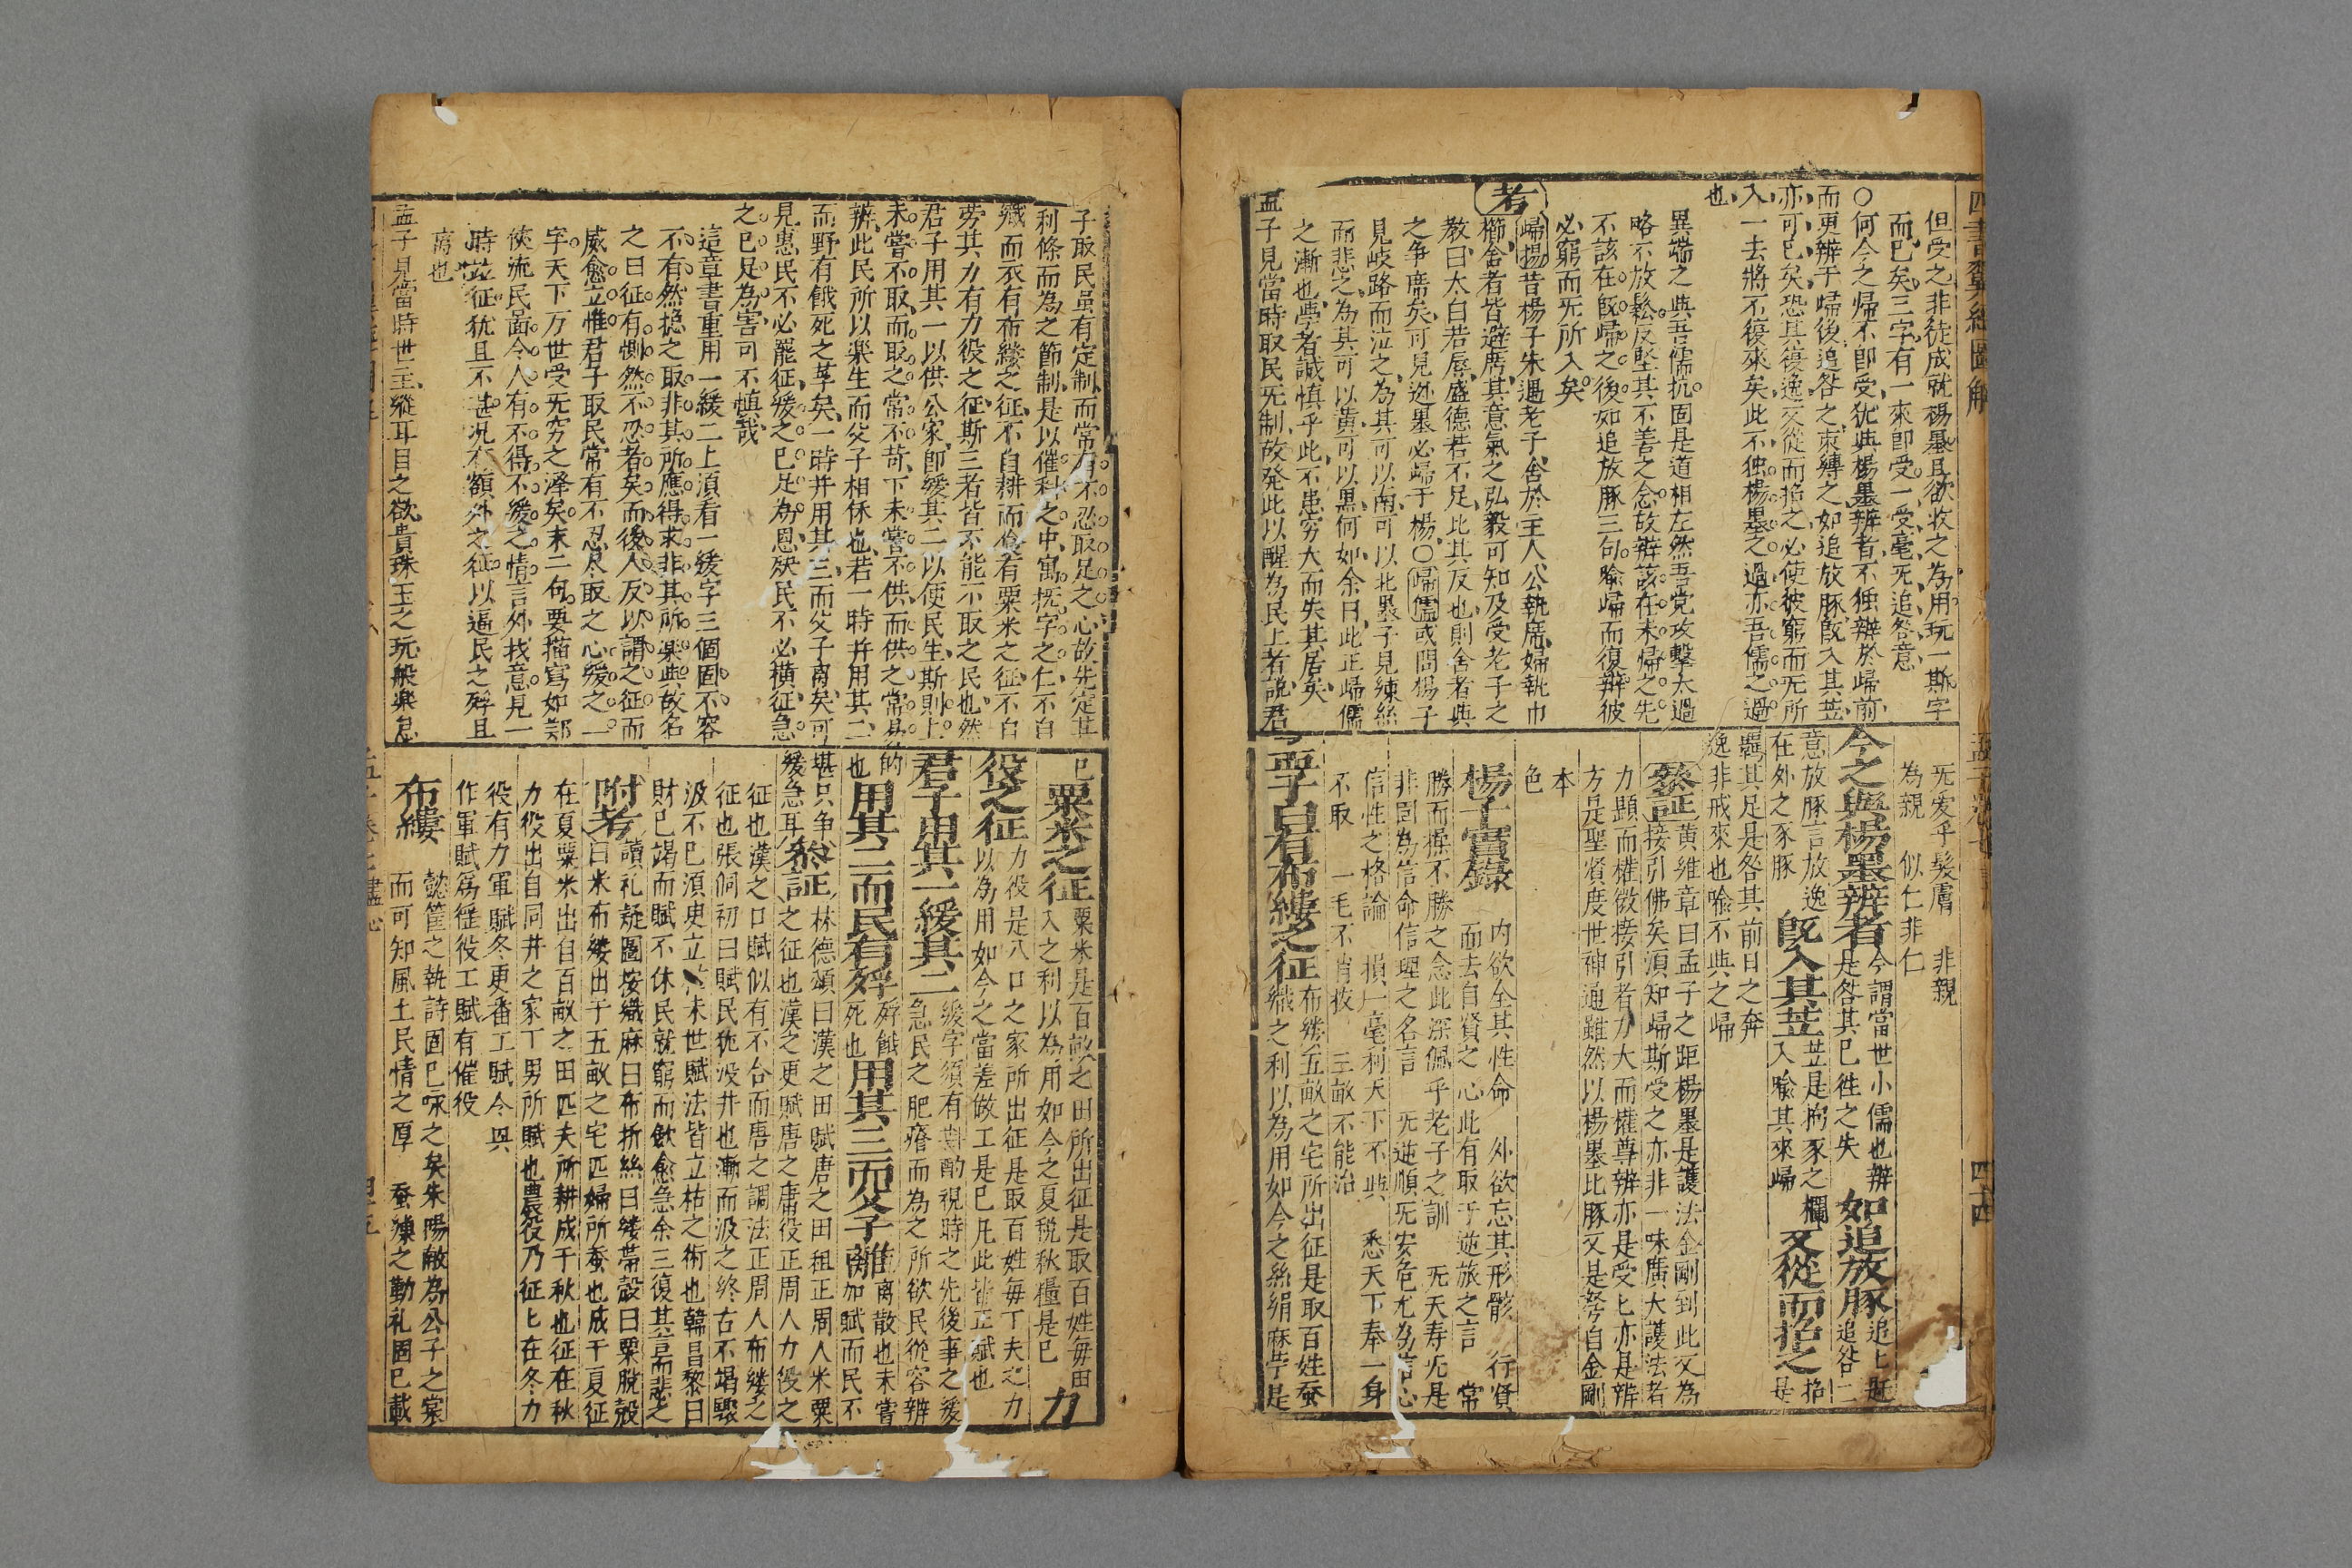 但受之非徒成就楊墨且欲收之為用玩一斯字
而已矣三字有一來即受一受毫无追咎意
○何今之歸不即受犹與楊墨辨者不独辨於歸前
而更辨于歸後追咎之束縛之如追放豚既入其苙
亦可已矣恐其復逸又從而招之必使彼窮而无所
入一去將不復來矣此不独楊墨之過亦吾儒之過
也
異端之與吾儒抗固是道相左然吾党攻擊太過
略不放鬆反堅其不善之念故辨該在未歸之先
不該在既歸之後如追放豚三句喻歸而復辨彼
必窮而无所入矣
考
歸楊昔楊子朱遇老子舍於主人公執席婦執巾
櫛舍者皆避席其意氣之弘毅可知及受老子之
教曰太白若辱盛德若不足比其反也則舍者與
之争席矣可見逃墨必歸于楊○歸儒或問楊子
見岐路而泣之為其可以南可以北墨子見練絲
而悲之為其可以黄可以黒何如余曰此正歸儒
之漸也學者誠慎乎此不患穷大而失其居矣
孟子見當時取民无制故発此以醒為民上者說君
无爱乎髮膚 非親
為親 似仁非仁
今之與楊墨辨者
今謂當世小儒也辨
是咎其已徃之失
如追放豚
追上赶
追咎二
意放豚言放逸
在外之豕豚
既入其苙
苙是拘豕之欄
入喻其來歸
又從而招之
招是
羈其足是咎其前日之奔
逸非戒來也喻不與之歸
叅証
黄維章曰孟子之距楊墨是護法金剛到此又為
接引佛矣須知歸斯受之亦非一味廣大護法者
力顯而權微接引者力大而權尊辨亦是受匕亦是辨
方是聖賢度世神通雖然以楊墨比豚又是努目金剛
本
色
楊子實錄
内欲全其性命 外欲忘其形骸 行賢
而去自賢之心此有取于逆旅之言 常
勝而操不勝之念此深佩乎老子之訓 无天寿无是
非固為信命信理之名言 无逆順无安危尤為信心
信性之格論 損一毫利天下不與 悉天下奉一身
不取 一毛不肖拔 三畝不能治
孟子曰有布縷之征
布縷五畝之宅所出征是取百姓蚕
織之利以為用如今之絲絹麻苧是
四書翼經圖解
孟子卷七
四十四
子取民虽有定制而常有不忍取足之心故先定其
利條而為之節制是以催科之中寓抚字之仁不自
織而衣有布縷之征不自耕而食有粟米之征不自
劳其力有力役之征斯三者皆不能不取之民也然
君子用其一以供公家即緩其二以使民生斯則上
未嘗不取而取之常不苛下未嘗不供而供之常易
辨此民所以楽生而父子相保也若一時并用其二
而野有餓死之莩矣一時并用其三而父子离矣可
見惠民不必罷征緩之已足為恩殃民不必横征急
之已足為害可不慎哉
這章書重用一緩二上湏看一緩字三個固不容
不有然揔之取非其所應得求非其所樂與故名
之曰征有惻然不忍者矣而後人反以謂之征而
威愈立惟君子取民常有不忍尽取之心緩之一
字天下万世受无穷之泽矣末二句要描寫如鄭
俠流民啚令人有不得不緩之情言外找意見一
時並征犹且不甚况有額外之征以逼民之殍且
离也
孟子見當時世主縱耳目之欲貴珠玉之玩般楽怠
已
粟米之征
粟米是百畝之田所出征是取百姓每田
入之利以為用如今之夏稅秋糧是已
力
役之征
力役是八口之家所出征是取百姓每丁夫之力
以為用如今之當差做工是已凡此皆正賦也
君子用其一緩其二
緩字須有斟酌視時之先後事之緩
急民之肥瘠而為之所欲民從容辨
的
也
用其二而民有殍
殍餓
死也
用其三而父子離
離离散也未嘗
加賦而民不
堪只争
緩急耳
叅証
林德頌曰漢之田賦唐之田租正周人米粟
之征也漢之更賦唐之庸役正周人力役之
征也漢之口賦似有不合而唐之調法正周人布縷之
征也張侗初曰賦民犹汲井也漸而汲之終右不竭驟
汲不已湏臾立
未世賦法皆立枯之術也韓昌黎曰
財已竭而賦不休民就窮而歛愈急余三復其言而悲之
附考
讀礼疑圖按織麻曰布折絲曰縷帶殻曰粟脫殻
曰米布縷出于五畝之宅匹婦所蚕也成于夏征
在夏粟米出自百畝之田匹夫所耕成于秋也征在秋
力役出自同井之家丁男所賦也農役乃征匕在冬力
役有力軍賦冬更畨工賦今與
作軍賦為徭役工賦有催役
布縷
懿筐之執詩固已咏之矣朱陽敝為公子之裳
而可知風土民情之厚 蚕繅之勤礼固已載